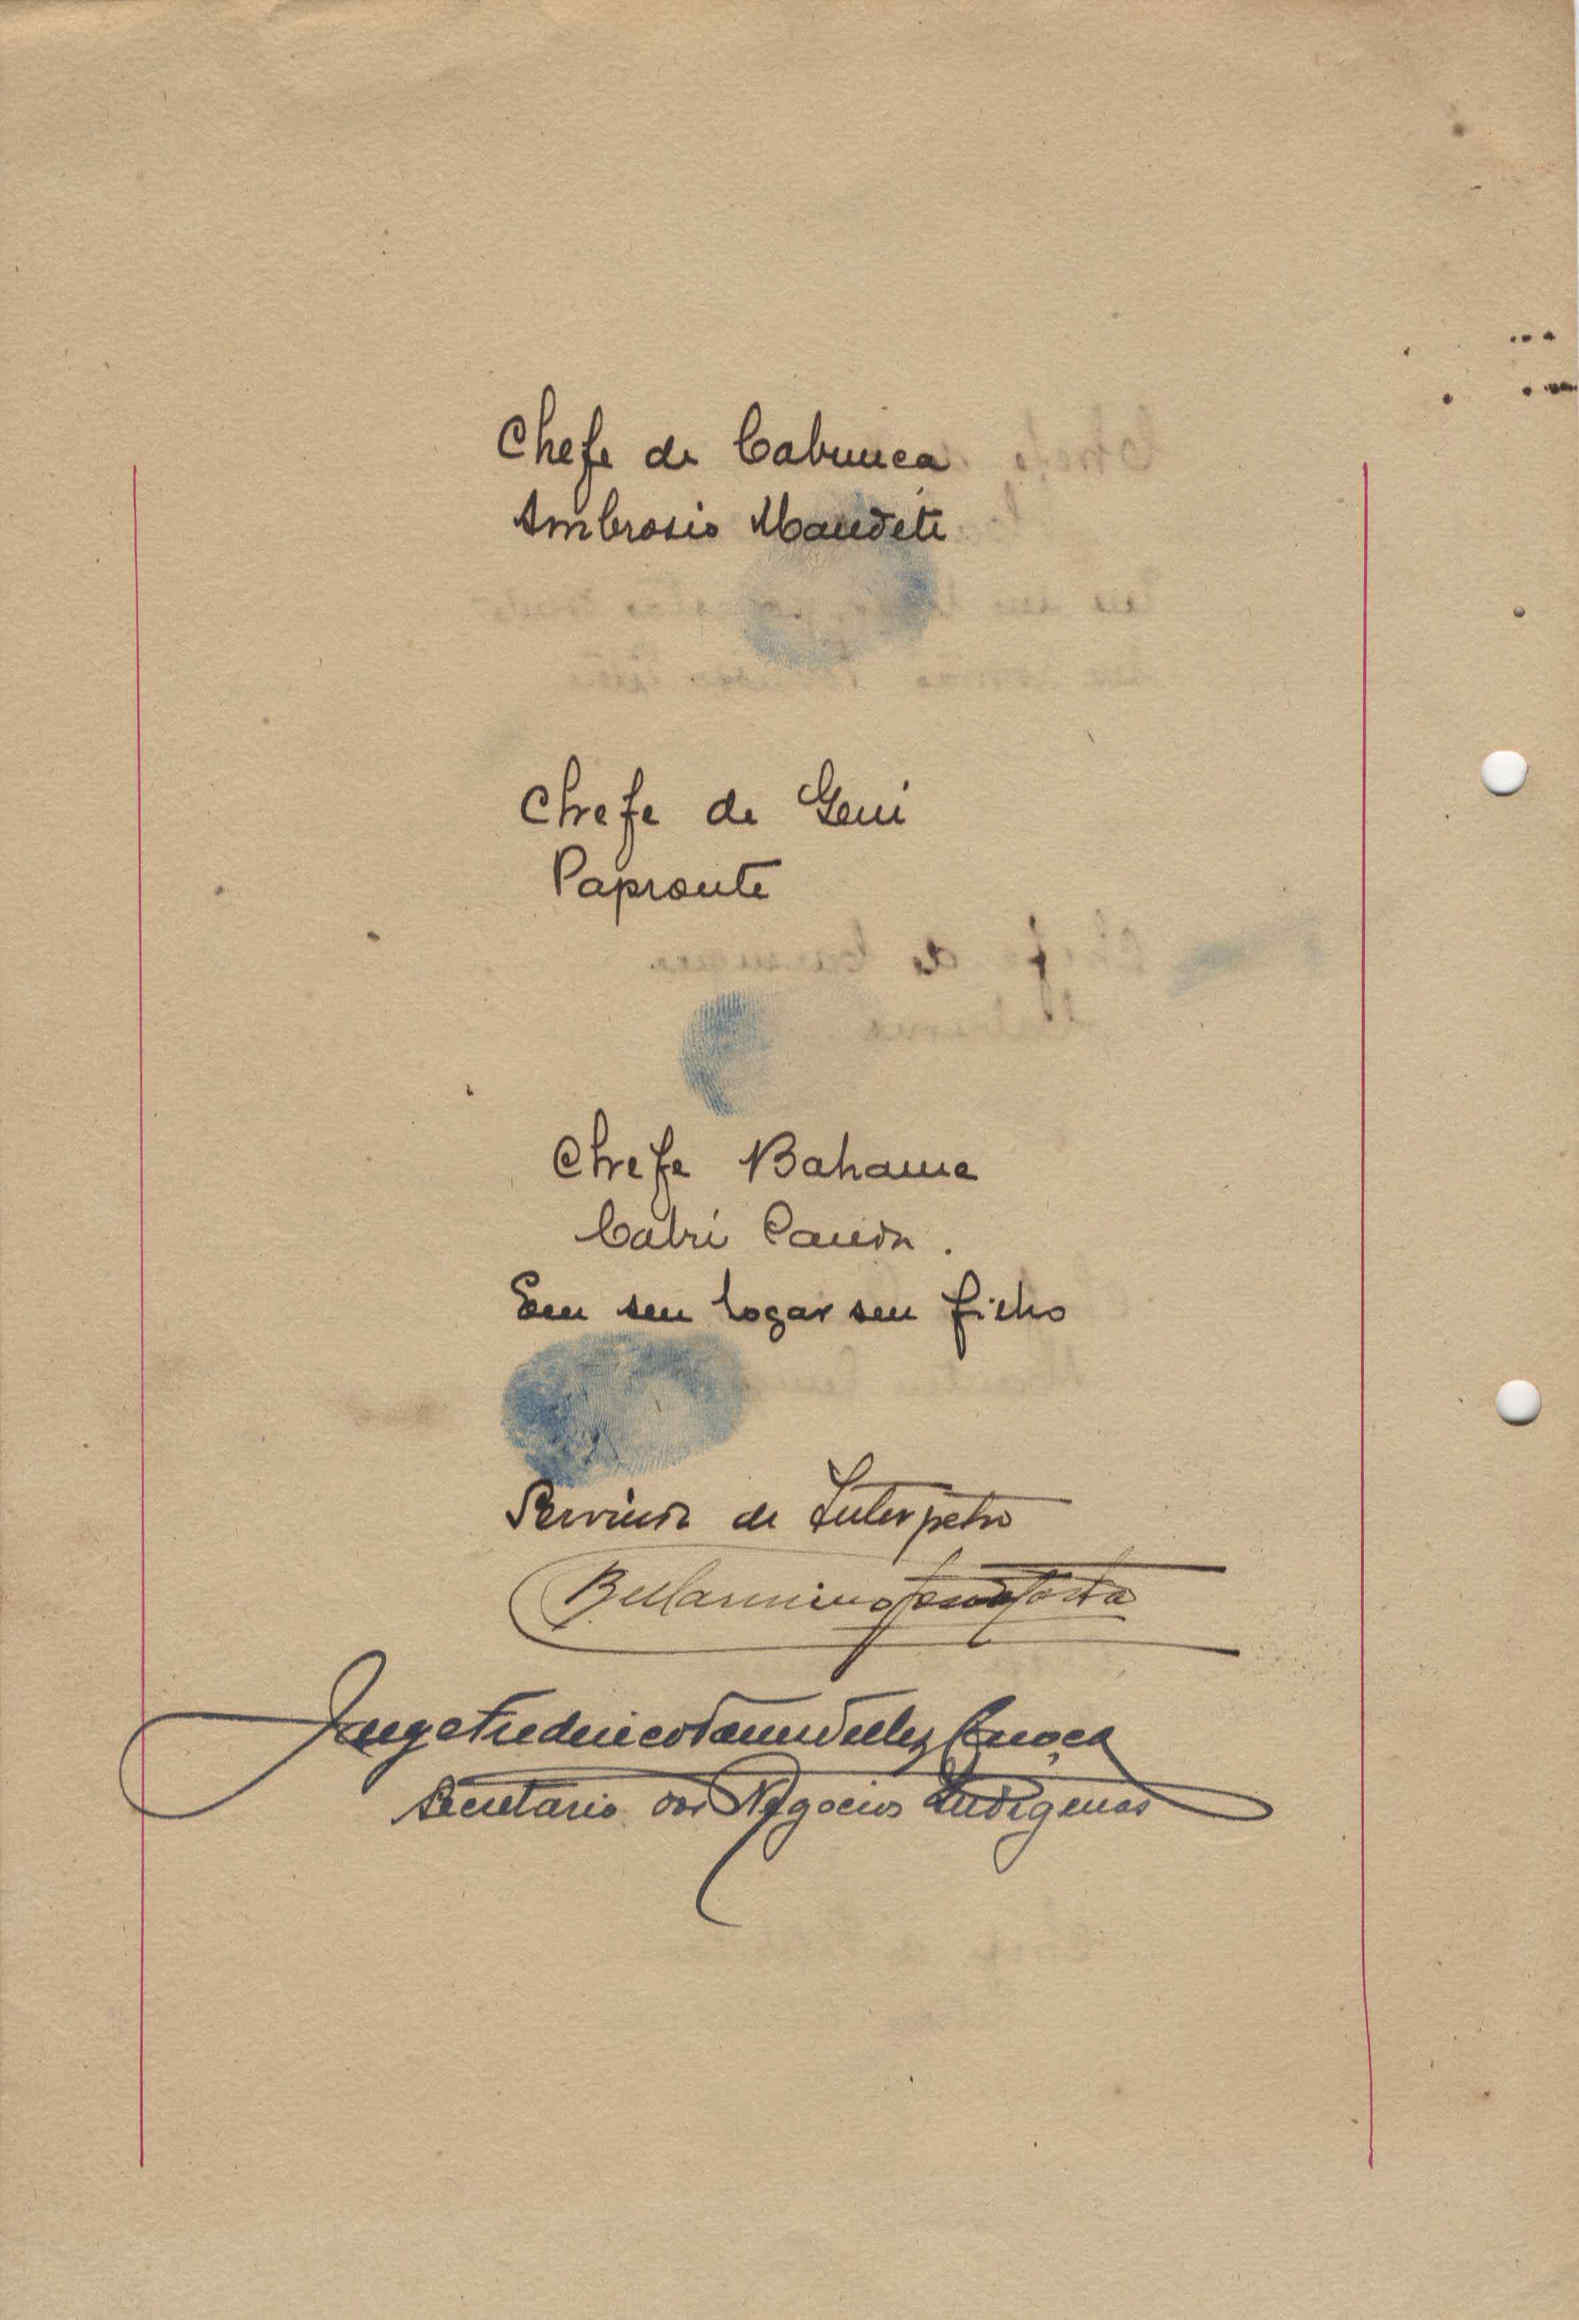 Chefe de Cabunca
Ambrosio Mandeti
Chefe de Geni
Papronte
Chefe Bahame
Cabri Canda.
Em seu logar seu filho
Servindo de Interpetro
Bellarmino
Jorge Frederico Velez Caroço
Secretario dos Negocios Indigenas